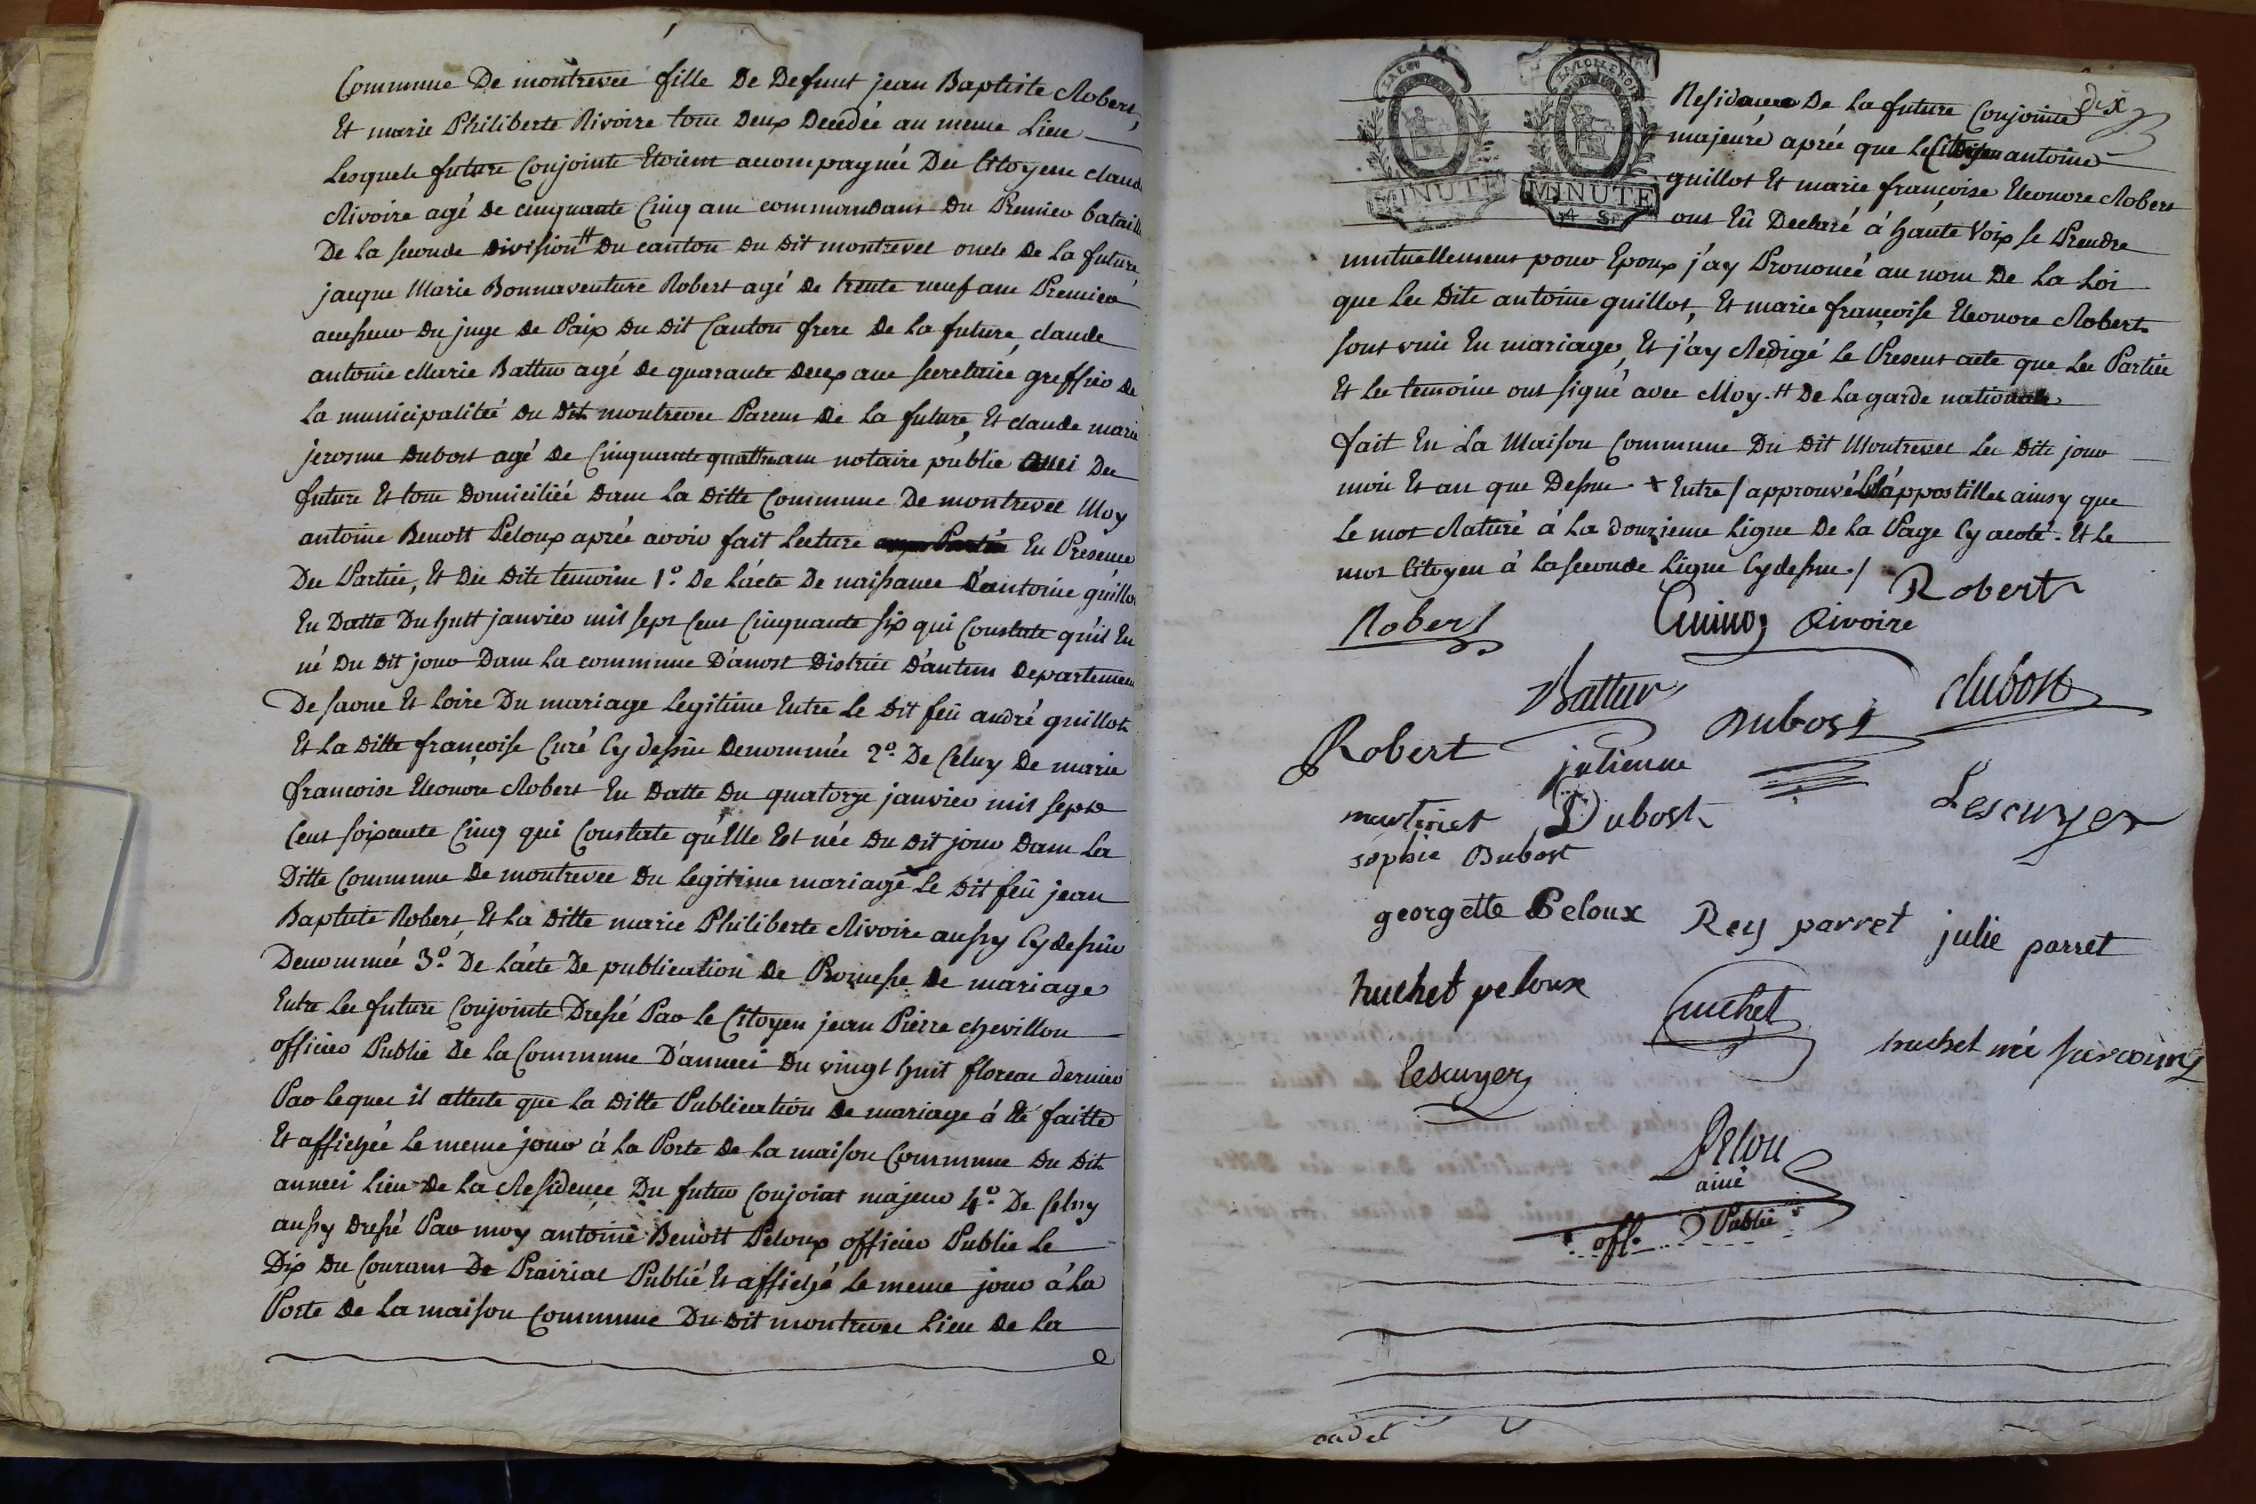 Commune De montrevel fille De Defunt jean Baptiste Robert,
Et marie Philiberte Rivoire tous Deux Decedés au meme Lieu
Lesquels futurs Conjoints Etoient accompagnés Des Citoyens claude
Rivoire agé de cinquante Cinq ans commandant Du Premier bataill
De la seconde Division # Du canton du dit montrevel oncle De La future,
jacque Marie Bonnaventure Robert agé de trente neuf ans Premier
assesseur Du juge de Paix Du Dit Canton frere De La future, claude
antoine Marie Battur agé de quarante deux ans secretaire greffier de
La municipalité du dit montrevel Parent De La future, Et claude marie
jerosme Dubost agé De Cinquante quatre ans notaire public amis Des
futurs Et tous Domiciliés Dans La Ditte Commune De montrevel Moy
antoine Benoit Peloux aprés avoir fait Lecture En Présence
Des Parties, Et Des Dits temoins 1º. De L'acte De naissance D'antoine guillot
En Datte Du huit janvier mil sept Cent Cinquante six qui Constate qu'il Est
né Du dit jour Dans La commune D'anost District D'autun Departement
De saone Et Loire Du mariage Legitime Entre Le Dit feû andré guillot
Et La Ditte françoise Curé Cy dessûs Denommés 2º. De Celuy De marie
francoise Eleonore Robert En Datte Du quatorze janvier mil sept
Cent soixante Cinq qui Constate qu'Elle Est née Du Dit jour Dans La
Ditte Commune De montrevel Du Legitime mariage Le Dit feû jean
Baptiste Robert, Et La Ditte marie Philiberte Rivoire aussy Cy dessûs
Denommés 3º. De L'acte De publication de Promesse De mariage
Entre Les futurs Conjoints Dressé Par Le Citoyen jean Pierre chevillon
officier Public De La Commune D'anneci Du vingt huit floreal dernier
Par Lequel il atteste que La Ditte Publication De mariage á Eté faitte
Et affichée Le meme jour á La Porte De La maison Commune Du Dit
anneci Lieu De La Residence Du futur Conjoint majeur 4º. De Celuy
aussy dressé Par moy antoine Benoit Peloux officier Public Le
Dix Du Courant De Prairial Publié Et affiché Le meme jour á La
Porte De La maison Commune Du Dit montrevel Lieu De La
MINUTE MINUTE
4 S.
dix
Residence De La future Conjointe
majeure aprés que Le Citoyen antoine
guillot Et marie françoise Eleonore Robert
ont Eû Declaré á háute Voix se Prendre
mutuellement pour Epoux j'ay Prononcé au nom De La Loi
que Les Dits antoine guillot, Et marie françoise Eleonore Robert
sont unis En mariage, Et j'ay Redigé Le Present acte que Les Parties
Et Les temoins ont signé avec Moy. # De La garde nationale
fait En La Maison Commune Du Dit Montrevel Les Dits jour
mois Et an que Dessus. x Entre / approuvé Les appostilles ainsy que
Le mot Raturé á La Douzieme Ligne De La Page Cy acoté. Et Le
mot Citoyen á La seconde Ligne Cy dessus. /
Robert
Robert
Rivoire
Battur
Dubost
dubost
Robert
julienne
Dubost
martinet
Lescuyer
sophie Dubost
georgette Peloux
Rey parret
julie parret
huchet peloux
huchet
huchet né
lescuyer
Pelou
ainé
off. Public